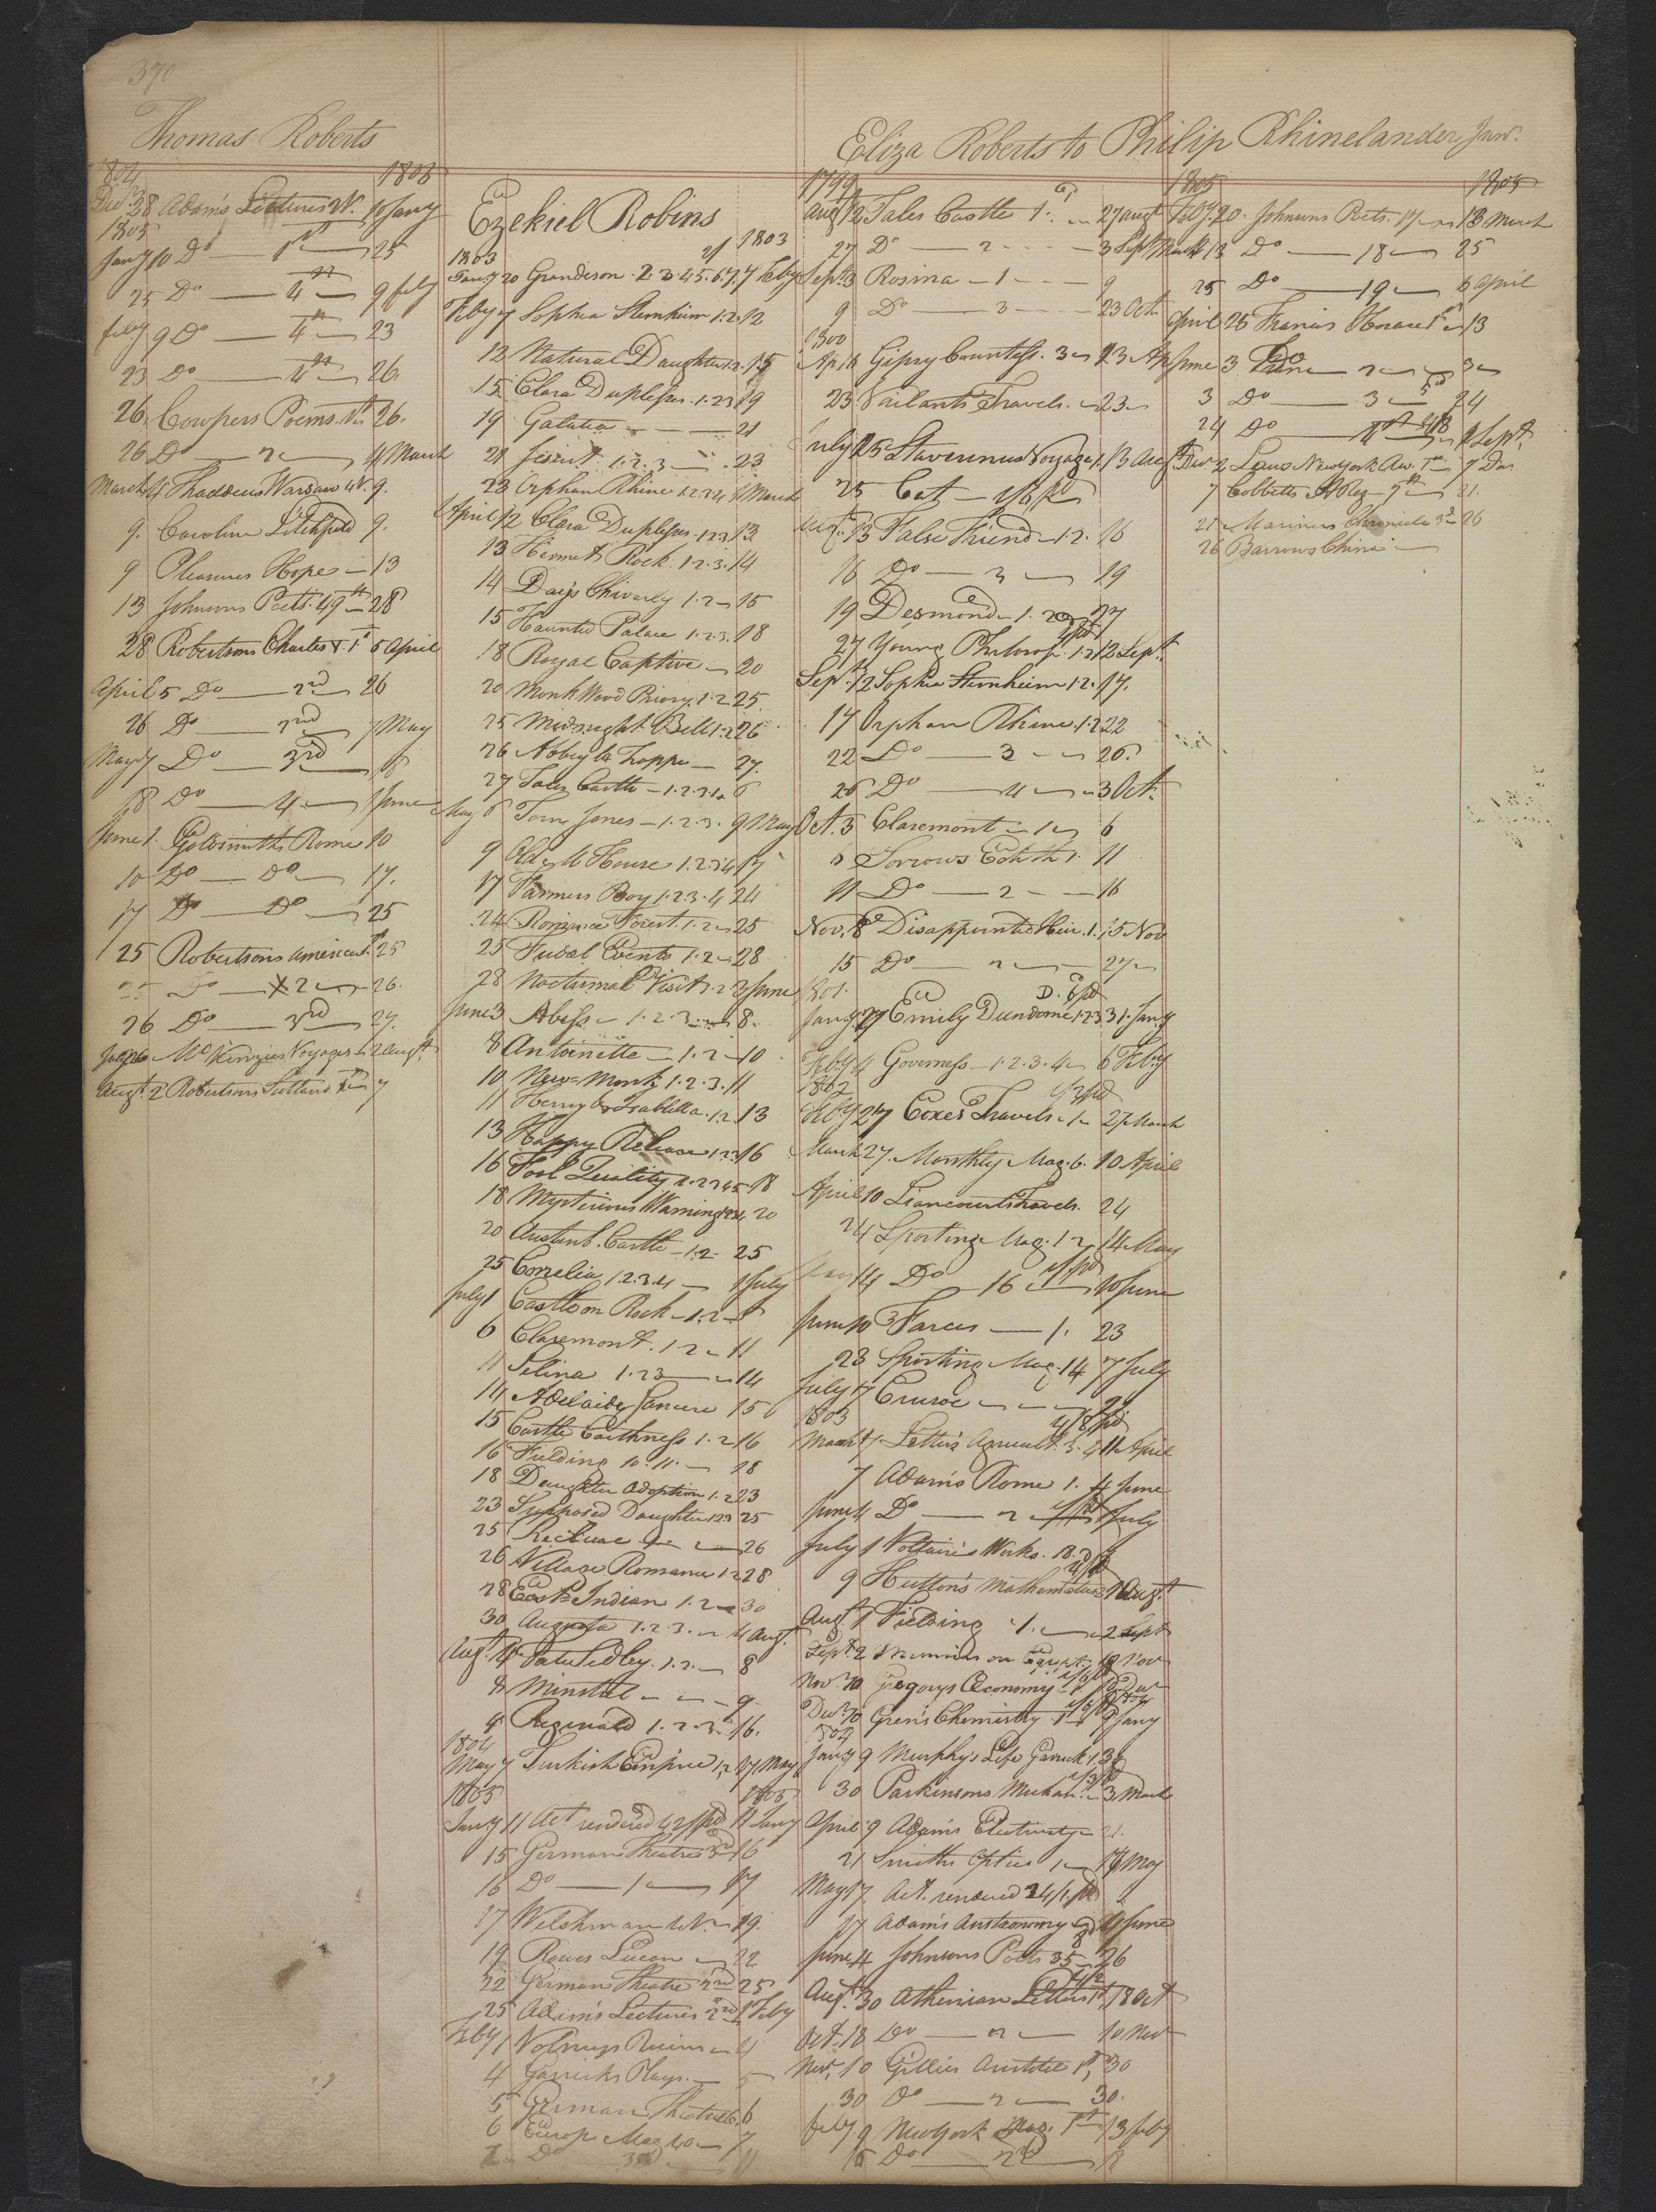 370
Thomas Roberts
1804 1805
Decr. 28 Adam's Lectures 2 V. 10 Jany
1805
Jany 10 Do — 1st — 25
25 Do — 4th — 9 feby
feby 9 Do — 4th — 23
23 Do — 4th — 26
26 Cowpers Poems 26.
26 Do — 2 — 4 March
March 4 Thaddeus Warsaw 4 V. 9.
9. Caroline Litchfield 9.
9 Pleasures Hope — 13
13 Johnsons Poets. 49th — 28
28 Robertsons Charles V. 1st 5 April
April 5 Do — 2nd — 26
26 Do — 2nd 7 May
May 7 Do — 3rd 18
18 Do — 4 — 1 June
June 1. Goldsmiths Rome 10
10 Do — Do — 17.
17 Do — Do — 25
25 Robertsons America 1st 25
25 Do — 2 — 26.
26 Do — 3rd 27.
July 26 McKenzies Voyages 2 Augt.
Augt. 2 Robertsons Scotland 1st 7
Ezekiel Robins
1803 1803
Jany 20 Grandison. 2.3.4.5.6.7. 7 Feby
Feby 7 Sophia Sternheim 1.2. 12
12 Natural Daughter 1.2. 15
15 Clara Duplessis. 1.2.3 19
19 Galatea — 21
21 Jesuit 1.2.3 — 23
23 Orphan Rhine 1.2.3.4 1 March
April 12 Clara Duplessis 1.2.3 13
13 Hermits Rock. 1.2.3. 14
14 Days Chivalry 1.2 — 15
15 Haunted Palace 1.2.3. 18
18 Royal Captive — 20
20 Monk Wood Priory. 1.2 25.
25 Midnight Bell 1.2 26
26 Abbey La Trappe — 27.
27 Tales Castle — 1.2.3.4 6
May 6 Tom Jones — 1.2.3. 9 May
9 Old M House 1.2.3.4 17
17 Farmers Boy 1.2.3.4 24
24 Romance Forest. 1.2 — 25
25 Feudal Events 1.2 — 28
28 Nocturnal Visit 1.2 3 June
June 3 Abess — 1.2.3 — 8.
8 Antoinette — 1.2 — 10
10 New-Monk 1.2.3. 11
11 Henry & Isabella. 1.2. 13
13 Happy Release 1.2.3 16
16 Fool Quality 1.2.3.4.5 18
18 Mysterious Warning 1.2.3.4. 20
20 Austenb. Castle — 1.2 — 25
25 Cornelia 1.2.3.4 — 1 July
July 1 Castle on Rock — 1.2 — 6
6 Claremont. 1.2 — 11
11 Selina 1.2.3 — 14
14 Adelaide Sancere 15
15 Castle Caithness 1.2 16
16 Fielding 10.11. — 18
18 Daughter Adoption 1.2 23
23 Supposed Daughter 1.2.3 25
25 Recluse — 26
26 Village Romance 1.2 28
28 East Indian 1.2 — 30
30 Augusta 1.2.3. — 4 Augt.
Augt. 4 Fate Sedley. 1.2. — 8
8 Minstrel — — 9
9 Reginald 1.2.3 — 16.
1804
May 7 Turkish Empire 1.2 27 May
1805 1805
Jany 11 Act rendered 42/ pd 11 Jany
15 German Theatre 3rd 16
16 Do — 1 — 17
17 Welshman 4 V. — 19.
19 Rowes Lucan — 22
22 German Theatre 2nd 25
25 Adam's Lectures 2nd 1 Feby
Feby 1 Volneys Ruins — 4
4 Garricks Plays. — 5
5 German Theatre 6
6 Europ. Mag 40 — 7
7 Do
Eliza Roberts to Philip Rhinelander Junr.
1799
Augt 12 Tales Castle 1. — 27 Augt
27 Do — 2 — 3 Sept
Sept 3 Rosina — 1 — 9
9 Do — 3 — 23 Oct.
1800
April Gipsy Countess. 3 — 23 Ap
23 Vailants Travels. — 23
July 25 Stavorinus Voyage 1. 13 Augt
25 Cat — 1/6 pd
Augt. 13 False Friend — 1.2. 16
16 Do — 3 — 19
19 Desmond — 1.2 27
27 Young Philosop. 1.2 12 Sept.
Sept. 12 Sophia Sternheim 1.2. 17.
17 Orphan Rhine. 1.2 22
22 Do — 3 — 26.
26 Do — 4 — 3 Oct.
Oct. 3 Claremont — 1 — 6
6 Sorrows Edith 1. 11
11 Do — 2 — 16
Nov. 8 Disappointed Heir. 1. 15 Nov
15 Do — 2 — 27
1801.
Jany 27 Emily Dundorne 1.2.3 31. Jany
Feby 4 Governess — 1.2.3.4 — 6 Feby
1802
Feby 27 Coxes Travels. 1 — 27 March
March 27. Monthly Mag. 6. 10 April
April 10 Liancourts Travels. 24
24 Sporting Mag. 1.2 14 May
May 14 Do — 16 10 June
June 10 Farces — 1. 23
23 Sporting Mag. 14 7 July
July 17 Crusoe — — 29
1803
March 7 Letters Agricult. 3. 4 11 April
7 Adam's Rome 1. 4 June
June 4 Do — 2 1 July
July 1 Voltaire's Works. 18. 9
9 Hutton's Mathematics 2 1 Augt
Augt 1 Fielding 1. — 2 Sept
Sept. 2 Memoirs on Egypt. 18 Nov
Nov. 10 Gregorys Oeconomy 1 10 Decr
Decr. 10 Gren's Chemistry 1st 9 Jany
1804
Jany 9 Murphy's Life Garrick 1. 30
30 Parkinsons Mechan. — 3 March
April 9 Adam's Electricity — 21.
21 Smiths Optics 1 — 17 May
May 17 Act. rendered 24/1. pd
17 Adam's Austronomy — 4 June
June 4 Johnsons Poets 35 — 26
Augt. 30 Athenian Letters 1st 18 Oct
Oct. 18 Do — 2 — 10 Nov
Nov. 10 Gillies Aristotle 1st 30
30 Do — 2 — 30.
feby 9 New York Mag. 1st 13 feby
16 Do — 2nd 18
1805 1805
Feby. 20. Johnsons Poets. 17 — 13 March
March 13 Do — 18 — 25
25 Do — 19 — 6 April
April 25 Francis Horace 1st 13
June 3 Do — 2 — 3
3 Do — 3 — 24
24 Do — 4th 2 Sept.
Decr. 2 Laws New York Aw. 1st 7 Dec
7 Cobbetts A Reg — 9th — 21.
21 Mariners Chronicle 3d 26
26 Barrows China —